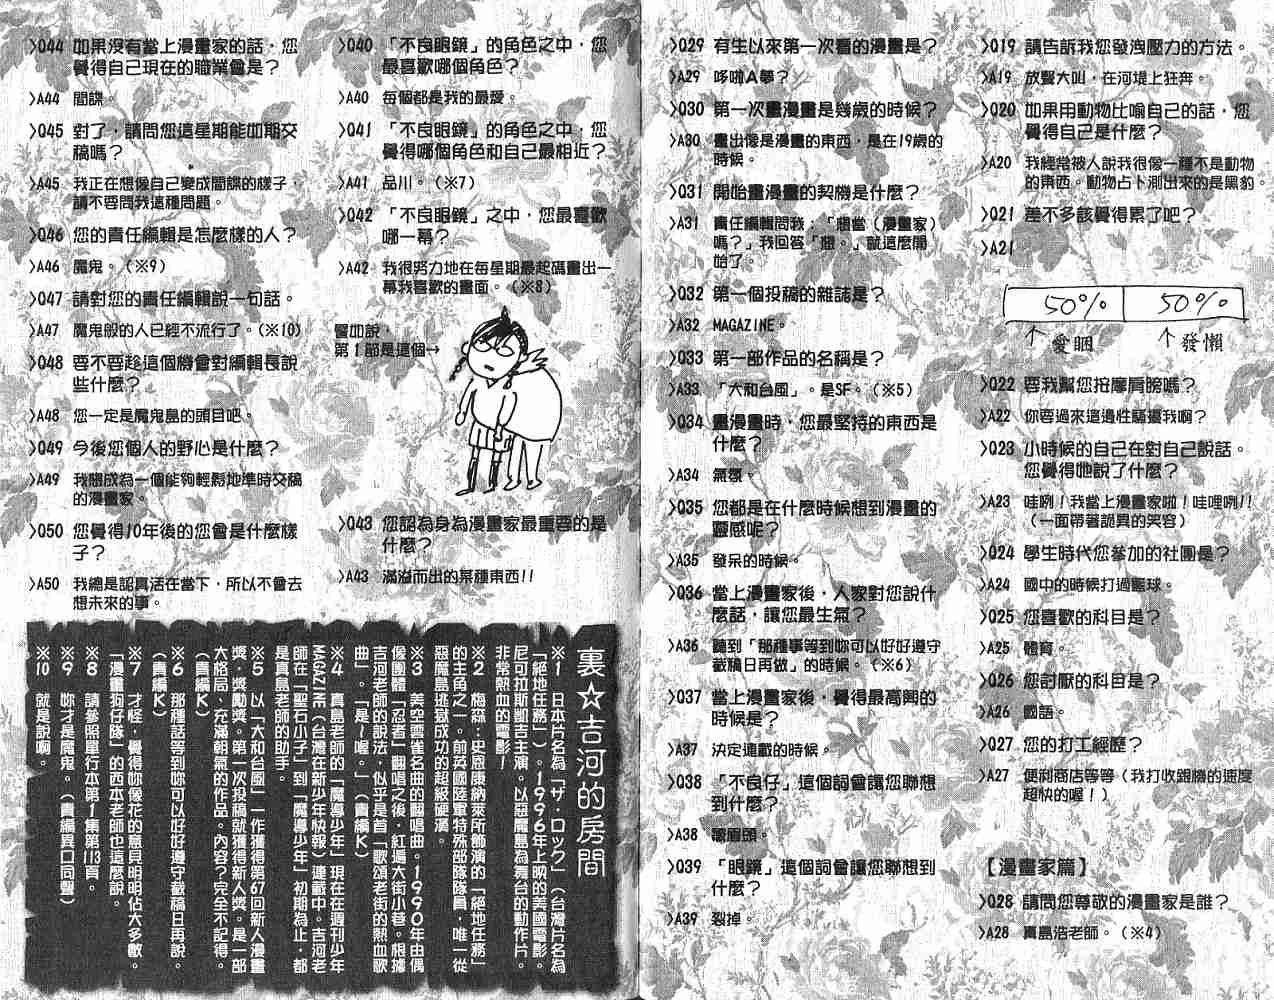 >Q19 請告訴我您發洩壓力的方法。
>A19 放聲大叫，在河堤上狂奔。
>Q20 如果用動物比喻自己的話，您
覺得自己是什麼？
>A20 我經常被人說我很像一種不是動物
的東西。動物占卜測出來的是黑豹。
>Q21 差不多該覺得累了吧？
>A21
50% 50%
↑愛睏 ↑發懶
>Q22 要我幫您按摩肩膀嗎？
>A22 你要過來這邊性騷擾我啊？
>Q23 小時候的自己在對自己說話。
您覺得她說了什麼？
>A23 哇咧！我當上漫畫家啦！哇哩咧!!
（一面帶著詭異的笑容）
>Q24 學生時代您參加的社團是？
>A24 國中的時候打過籃球。
>Q25 您喜歡的科目是？
>A25 體育。
>Q26 您討厭的科目是？
>A26 國語。
>Q27 您的打工經歷？
>A27 便利商店等等（我打收銀機的速度
超快的喔！）
【漫畫家篇】
>Q28 請問您尊敬的漫畫家是誰？
>A28 真島浩老師。（※4）
>Q29 有生以來第一次看的漫畫是？
>A29 哆啦A夢？
>Q30 第一次畫漫畫是幾歲的時候？
>A30 畫出像是漫畫的東西，是在19歲的
時候。
>Q31 開始畫漫畫的契機是什麼？
>A31 責任編輯問我：「想當（漫畫家）
嗎？」我回答「想。」就這麼開
始了。
>Q32 第一個投稿的雜誌是？
>A32 MAGAZINE。
>Q33 第一部作品的名稱是？
>A33 「大和台風」。是SF。（※5）
>Q34 畫漫畫時，您最堅持的東西是
什麼？
>A34 氣氛。
>Q35 您都是在什麼時候想到漫畫的
靈感呢？
>A35 發呆的時候。
>Q36 當上漫畫家後，人家對您說什
麼話，讓您最生氣？
>A36 聽到「那種事等到妳可以好好遵守
截稿日再做」的時候。（※6）
>Q37 當上漫畫家後，覺得最高興的
時候是？
>A37 決定連載的時候。
>Q38 「不良仔」這個詞會讓您聯想
到什麼？
>A38 皺眉頭。
>Q39 「眼鏡」這個詞會讓您聯想到
什麼？
>A39 裂掉。
>Q40 「不良眼鏡」的角色之中，您
最喜歡哪個角色？
>A40 每個都是我的最愛。
>Q41 「不良眼鏡」的角色之中，您
覺得哪個角色和自己最相近？
>A41 品川。（※7）
>Q42 「不良眼鏡」之中，您最喜歡
哪一幕？
>A42 我很努力地在每星期最起碼畫出一
幕我喜歡的畫面。（※8）
譬如說，
第1部是這個→
>Q43 您認為身為漫畫家最重要的是
什麼？
>A43 滿溢而出的某種東西!!
>Q44 如果沒有當上漫畫家的話，您
覺得自己現在的職業會是？
>A44 間諜。
>Q45 對了，請問您這星期能如期交
稿嗎？
>A45 我正在想像自己變成間諜的樣子，
請不要問我這種問題。
>Q46 您的責任編輯是怎麼樣的人？
>A46 魔鬼。（※9）
>Q47 請對您的責任編輯說一句話。
>A47 魔鬼般的人已經不流行了。（※10）
>Q48 要不要趁這個機會對編輯長說
些什麼？
>A48 您一定是魔鬼島的頭目吧。
>Q49 今後您個人的野心是什麼？
>A49 我想成為一個能夠輕鬆地準時交稿
的漫畫家。
>Q50 您覺得10年後的您會是什麼樣
子？
>A50 我總是認真活在當下，所以不會去
想未來的事。
裏☆吉河的房間
※1 日本片名為「ザ・ロック」（台灣片名為
「絕地任務」）。1996年上映的美國電影。
尼可拉斯凱吉主演。以惡魔島為舞台的動作片。
非常熱血的電影！
※2 梅森：史恩康納萊所飾演的「絕地任務」
的主角之一。前英國陸軍特殊部隊隊員，唯一從
惡魔島逃獄成功的超級硬漢。
※3 美空雲雀名曲的翻唱曲。1990年由偶
像團體「忍者」翻唱之後，紅遍大街小巷。根據
吉河老師的說法，似乎是首「歌頌老街的熱血歌
曲」。「是～喔。」（責編K）
※4 真島老師的「魔導少年」現在在週刊少年
MAGAZINE（台灣在新少年快報）連載中。吉河老
師在「聖石小子」到「魔導少年」初期為止，都
是真島老師的助手。
※5 以「大和台風」一作獲得第67回新人漫畫
獎・獎勵獎。第一次投稿就獲得新人獎。是一部
大格局、充滿朝氣的作品。內容？完全不記得。
（責編K）
※6 那種話等到妳可以好好遵守截稿日再說。
（責編K）
※7 才怪，覺得妳像花的意見明明佔大多數。
「漫畫狗仔隊」的西本老師也這麼說。
※8 請參照單行本第1集第113頁。
※9 妳才是魔鬼。（責編異口同聲）
※10 就是說啊。